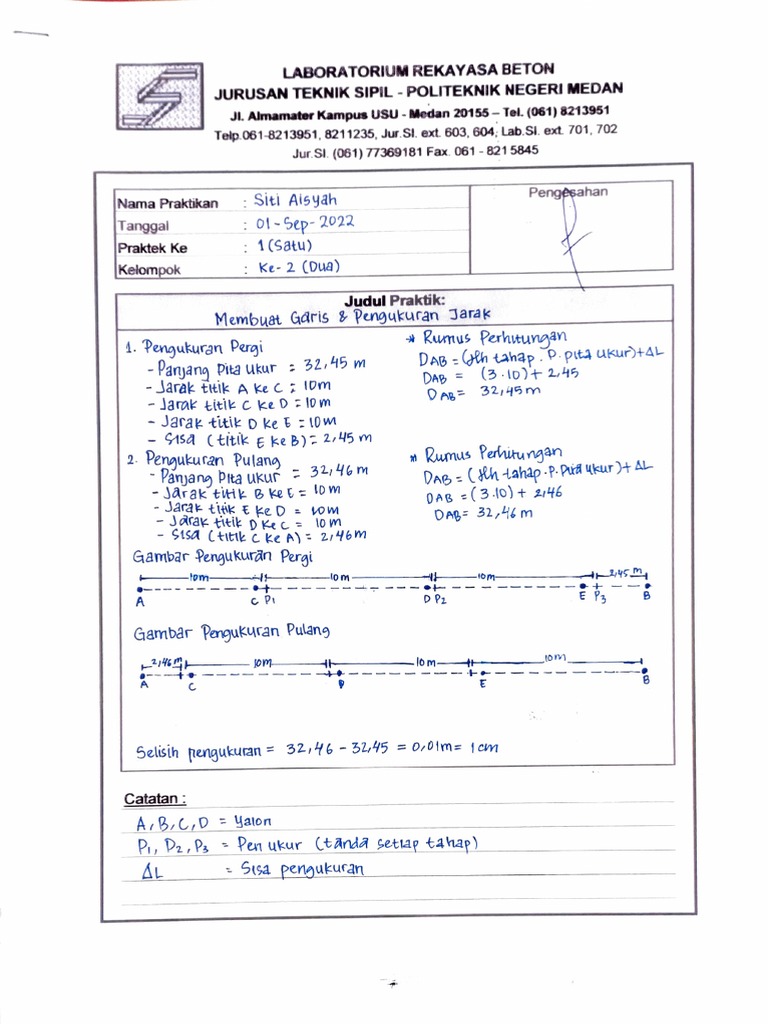 LABORATORIUM REKAYASA BETON
JURUSAN TEKNIK SIPIL - POLITEKNIK NEGERI MEDAN
Jl. Almamater Kampus USU - Medan 20155 – Tel. (061) 8213951
Telp.061-8213951, 8211235, Jur.SI. ext. 603, 604, Lab.SI. ext. 701, 702
Jur.SI. (061) 77369181 Fax. 061 - 821 5845
Nama Praktikan : Siti Aisyah
Tanggal : 01-Sep-2022
Praktek Ke : 1 (Satu)
Kelompok : Ke-2 (Dua)
Pengesahan
Judul Praktik:
Membuat Garis & Pengukuran Jarak
1. Pengukuran Pergi
- Panjang Pita ukur = 32,45 m
- Jarak titik A Ke C = 10m
- Jarak titik C Ke D = 10m
- Jarak titik D Ke E = 10m
- Sisa (titik E Ke B) = 2,45 m
* Rumus Perhitungan
DAB = (Jlh tahap . P. pita ukur) + ΔL
DAB = (3.10) + 2,45
DAB = 32,45 m
2. Pengukuran Pulang
- Panjang Pita ukur = 32,46 m
- Jarak titik B Ke E = 10m
- Jarak titik E Ke D = 10m
- Jarak titik D Ke C = 10m
- Sisa (titik C Ke A) = 2,46m
* Rumus Perhitungan
DAB = (Jlh tahap . P. Pita ukur) + ΔL
DAB = (3.10) + 2,46
DAB = 32,46 m
Gambar Pengukuran Pergi
10m 10m 10m 2,45 m
A C P1 D P2 E P3 B
Gambar Pengukuran Pulang
2,46 m 10m 10m 10m
A C D E B
Selisih pengukuran = 32,46 - 32,45 = 0,01m = 1 cm
Catatan :
A, B, C, D = Yalon
P1, P2, P3 = Pen ukur (tanda setiap tahap)
ΔL = Sisa pengukuran